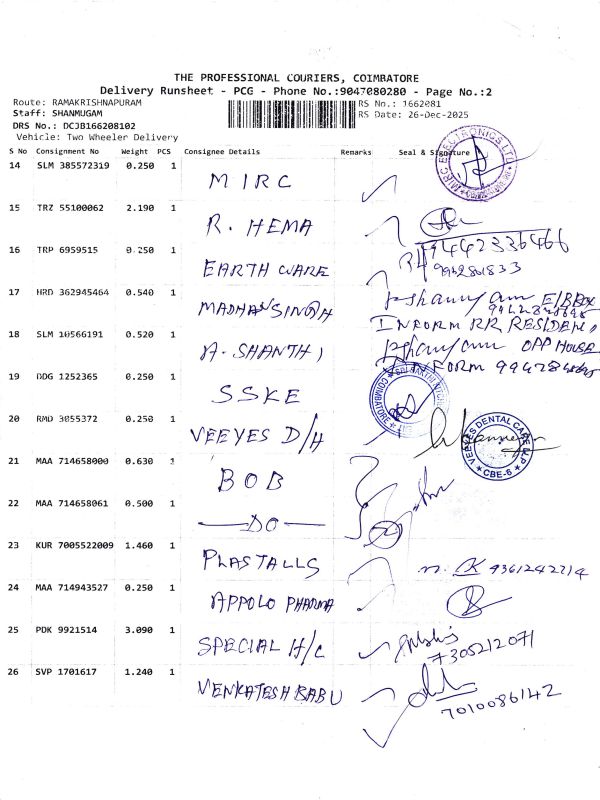 THE PROFESSIONAL COURIERS, COIMBATORE
Delivery Runsheet - PCG - Phone No.:9047080280 - Page No.:2
Route: RAMAKRISHNAPURAM
RS No.: 1662081
Staff: SHANMUGAM
RS Date: 26-Dec-2025
DRS No.: DCJB166208102
Vehicle: Two Wheeler Delivery
S No Consignment No Weight PCS Consignee Details Remarks Seal & Signature
14 SLM 385572319 0.250 1 MIRC
MIRC ELECTRONICS LTD
15 TRZ 55100062 2.190 1 R. HEMA
9442336466
16 TRP 6959515 0.250 1 EARTH WARE
17 HRD 362945464 0.540 1 MADHAN SINGH
INFORM RR RESIDEN
18 SLM 10566191 0.520 1 A. SHANTHI
OPP HOUSE
19 DDG 1252365 0.250 1 SSKE
COIMBATORE
20 RMD 3055372 0.250 1 VEEYES D/H
VEEYES DENTAL CARE
CBE-6
21 MAA 714658000 0.630 1 BOB
22 MAA 714658061 0.500 1 DO
23 KUR 7005522009 1.460 1 PLASTALLS
9361242214
24 MAA 714943527 0.250 1 APPOLO PHARMA
25 PDK 9921514 3.090 1 SPECIAL H/C
7305212071
26 SVP 1701617 1.240 1 VENKATESH BABU
7010086142